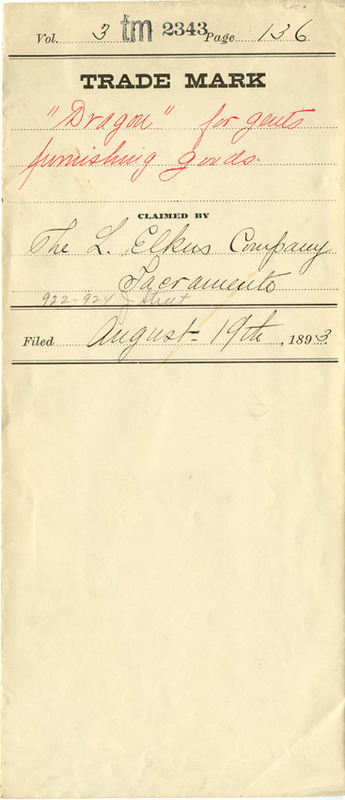 Vol. 3 tm 2343 Page 136
TRADE MARK
"Dragon" for gents
furnishing goods.
CLAIMED BY
The L. Elkus Company
Sacramento
922-924 J Street
Filed August 19th, 1893